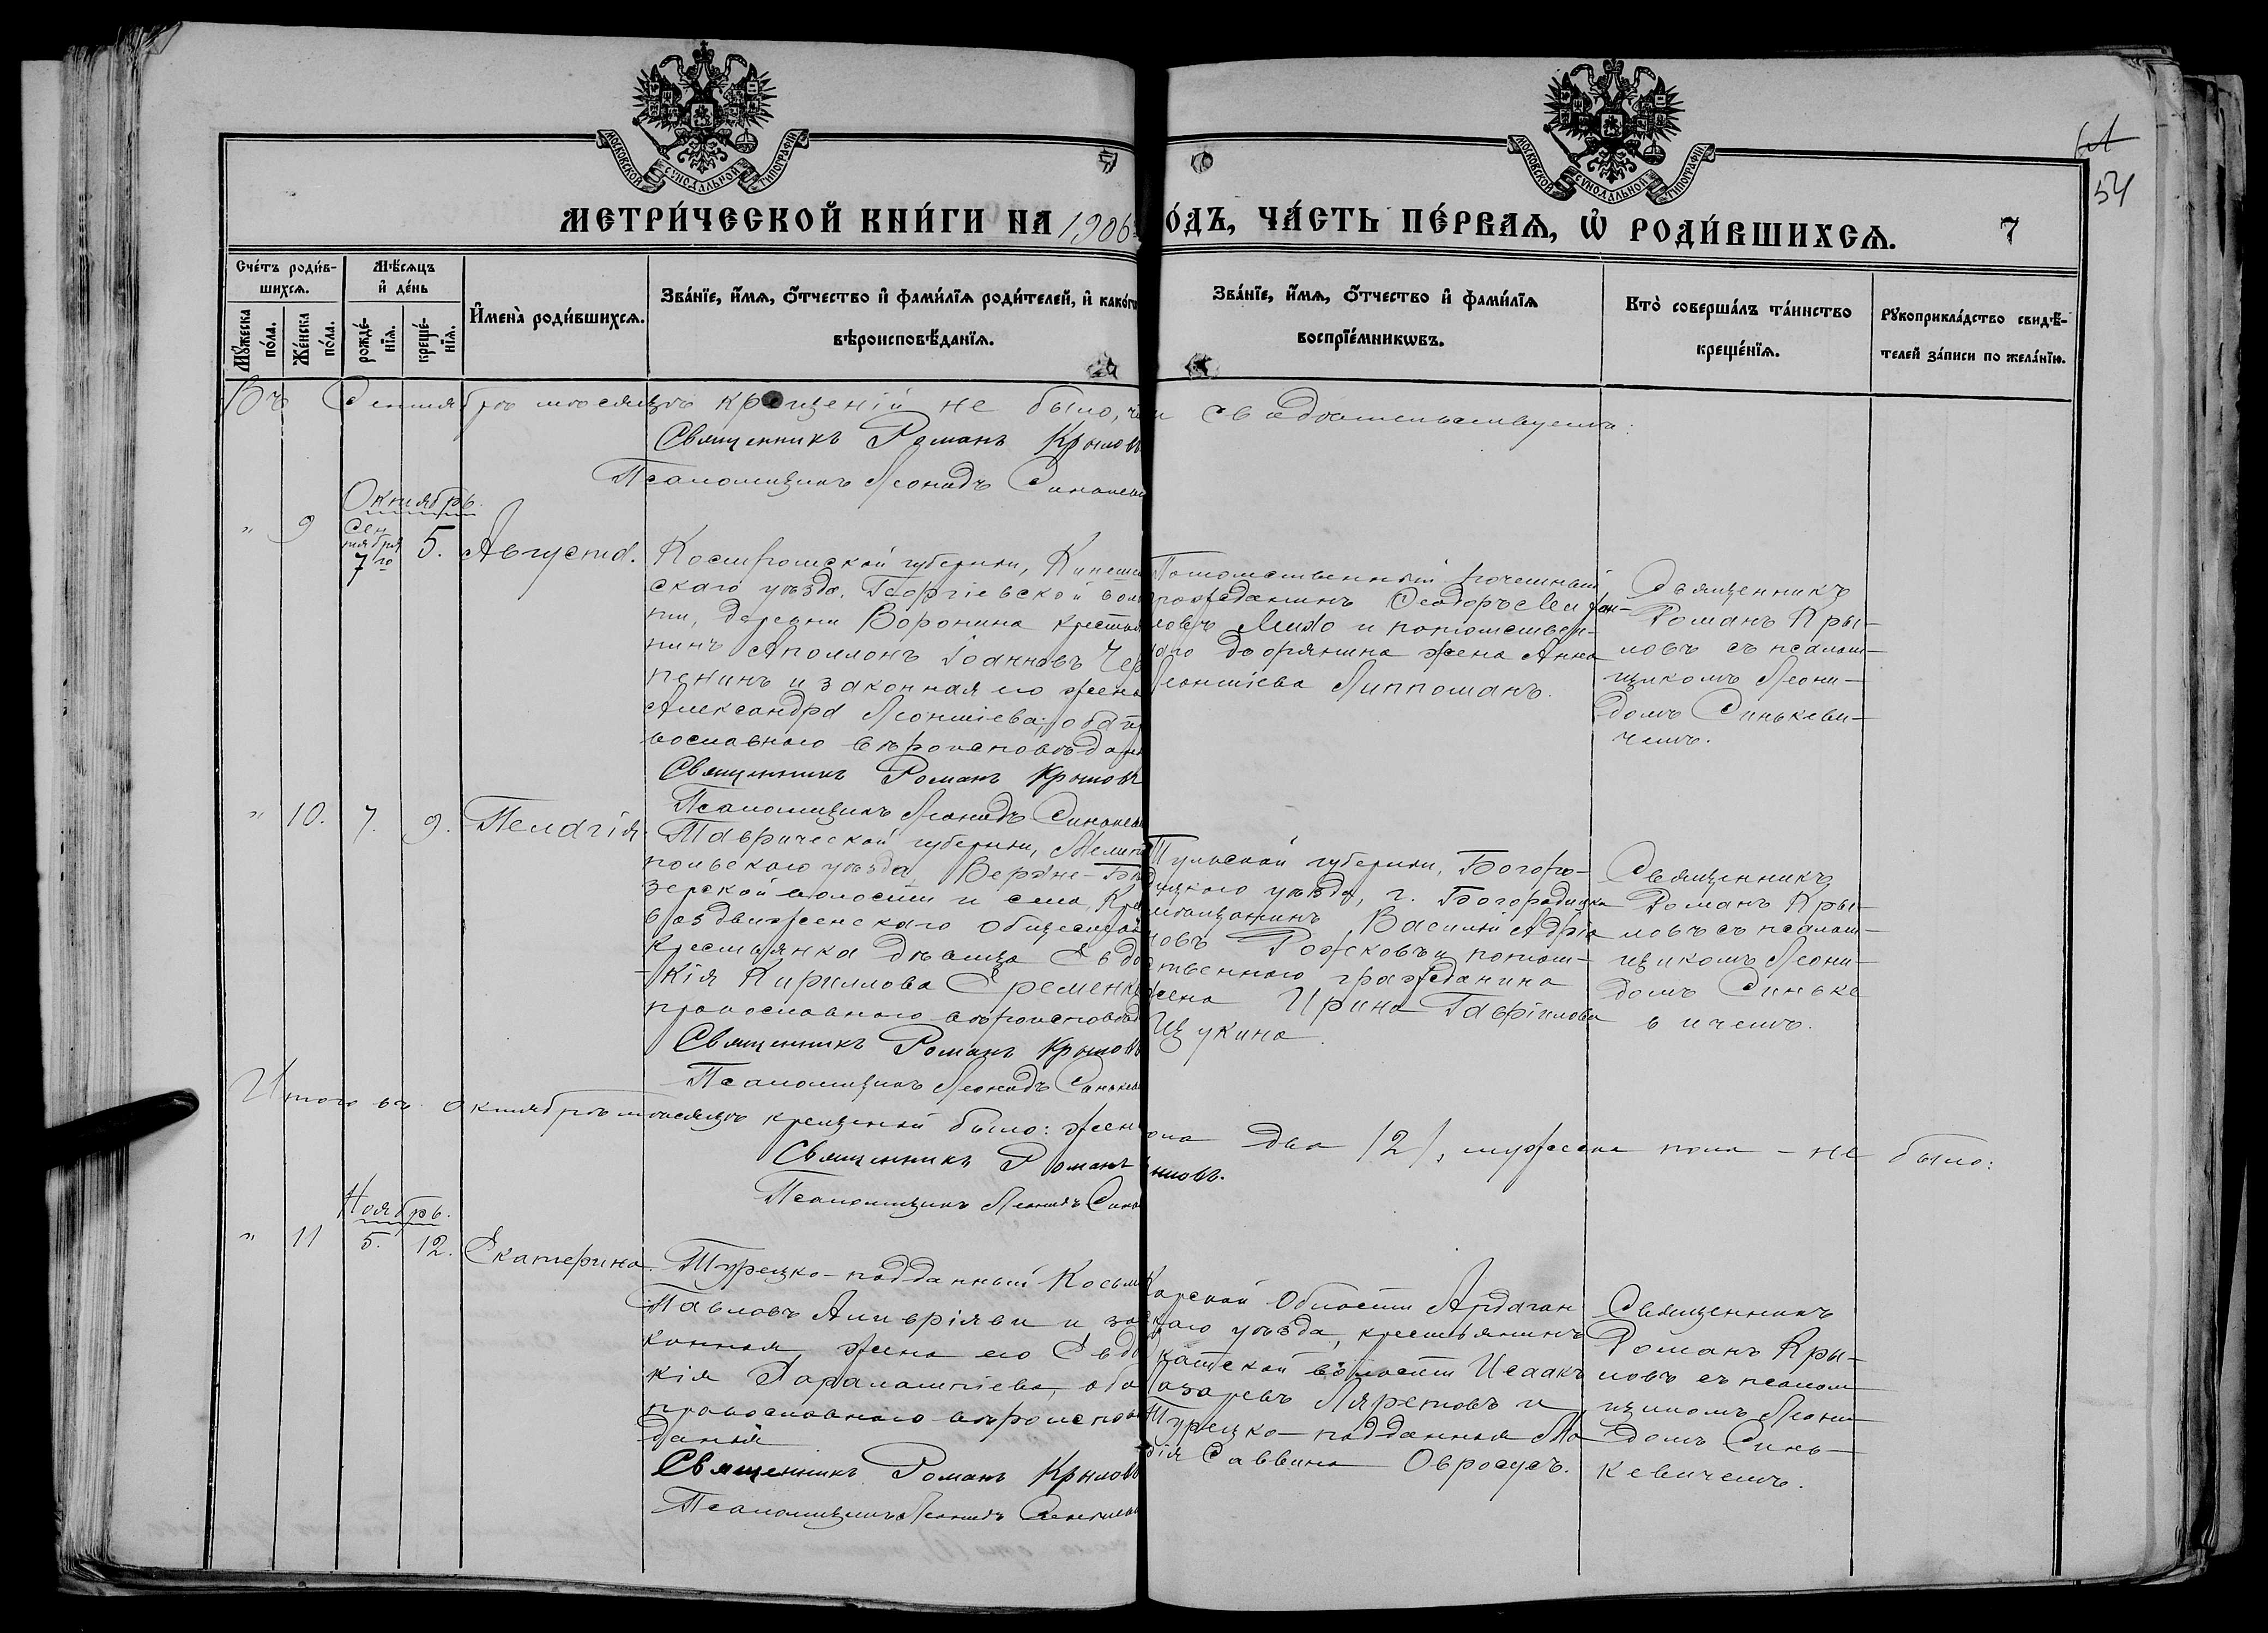 МОСКОВСКОЙ СУНОДАЛЬНОЙ ТИПОГРАФІИ
МОСКОВСКОЙ СУНОДАЛЬНОЙ ТИПОГРАФІИ
54
МЕТРИ́ЧЕСКОЙ КНИ́ГИ НА 1906
О́ДЪ, ЧА́СТЬ ПЕ́РВАѦ, Ѡ҆ РОДИ́ВШИХСѦ.
7
Сче́тъ роди́в-
шихсѧ.
Мѣ́сѧцъ
и҆ де́нь
Мꙋ́жеска
по́ла.
Же́нска
по́ла.
рожде́-
нїѧ.
креще́-
нїѧ.
И҆мена̀ роди́вшихсѧ.
Зва́нїе, и҆́мѧ, ѻ҆́тчество и҆ фами́лїѧ роди́телей, и҆ како́г
вѣроисповѣ́данїѧ.
Зва́нїе, и҆́мѧ, ѻ҆́тчество и҆ фами́лїѧ
воспрїе́мникѡвъ.
Кто̀ соверша́лъ та́инство
креще́нїѧ.
Рꙋкоприкла́дство свидѣ́-
телей за́писи по жела́нїю.
Въ Сентябрѣ мѣсяцѣ крещеній не было, че
м свидѣтельствуемъ:
Священникъ Романъ Крыловъ
Псаломщикъ Леонидъ Синькев
Октябрь.
" 9 Сен
тября
7го 5. Августа.
Костромской губерніи, Кинеш
скаго уѣзда, Георгіевской воло
ти, деревни Воронина кресть
нинъ Аполлонъ Іоанновъ Чер
пенинъ и законная его жена
Александра Леонтіева, оба пр
вославнаго вѣроисповѣдан
Священникъ Романъ Крыловъ
Псаломщикъ Леонидъ Синькев
Потомственный почетный
гражданинъ Ѳеодоръ
и потомствен-
наго дворянина жена Анна
Леонтіева Липпоманъ.
Священникъ
Романъ Кры-
ловъ съ псалом-
щикомъ Леони-
домъ Синькеви-
чемъ.
" 10. 7. 9. Пелагія.
Таврической губерніи, Мелито
польскаго уѣзда, Верхне-Бѣ
зерской волости и села, Кре
воздвиженскаго общества
Крестьянка дѣвица Евдо
кія Кириллова Еременк
православнаго вѣроисповѣд
Священникъ Романъ Крыловъ
Псаломщикъ Леонидъ Синькев
Тульской губерніи, Богоро-
дицкаго уѣзда, г. Богородицка
мѣщанинъ Василій Адріа
новъ Рожковъ и потом-
ственнаго гражданина
жена Ирина Гавріилова
Щукина.
Священникъ
Романъ Кры-
ловъ съ псалом-
щикомъ Леони-
домъ Синьке
вичемъ.
Итого въ октябрѣ мѣсяцѣ крещеній было: жен
пола два /2/, мужска пола – не было:
Священникъ Романъ
ыловъ.
Псаломщикъ Леонидъ Синь
Ноябрь.
" 11 5. 12. Екатерина.
Турецко-подданный Косьм
Павловъ и за
конная жена его Евдо
кія Харалампіева, оба
православнаго вѣроиспов
данія
Священникъ Романъ Крыловъ
Псаломщикъ Леонидъ Синькев
Карской Области Ардаган
скаго уѣзда, крестьянинъ
волости Исаакъ
Лазаревъ и
Турецко-подданная Ма
рія Саввина
Священникъ
Романъ Кры-
ловъ съ псалом
щикомъ Леони
домъ Синь-
кевичемъ.